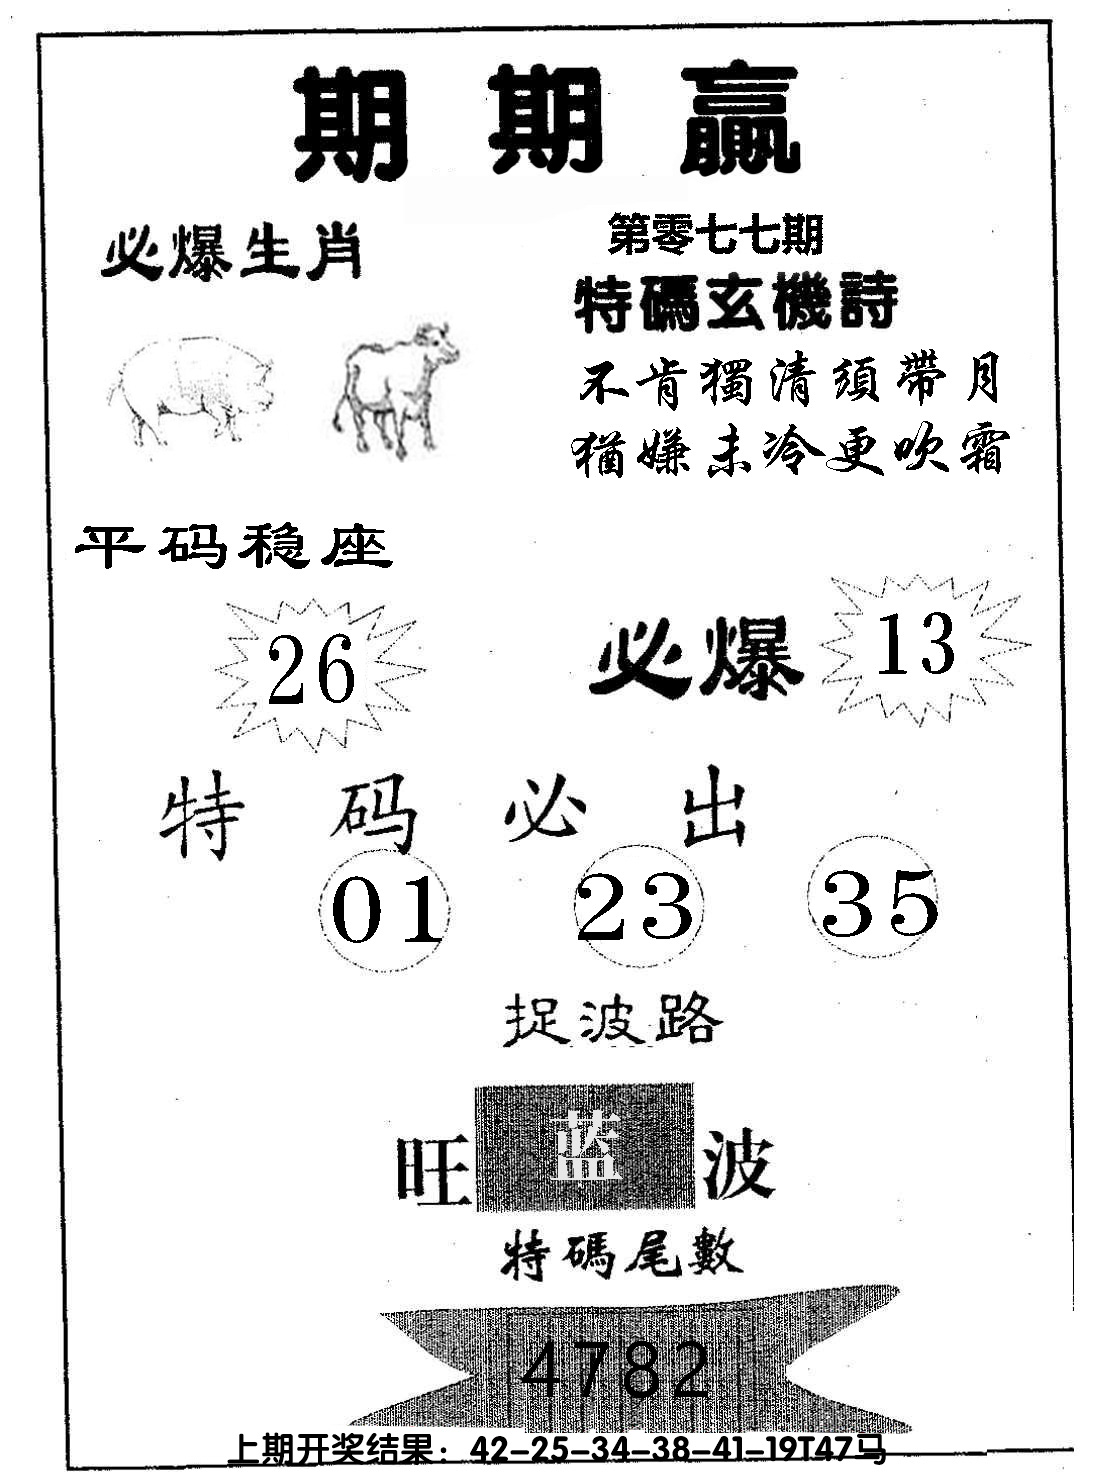 期期贏
必爆生肖
第零七七期
特碼玄機詩
不肯獨清須帶月
猶嫌未冷更吹霜
平码稳座
26
必爆 13
特码必出
01 23 35
捉波路
旺 蓝 波
特碼尾數
4782
上期开奖结果：42-25-34-38-41-19T47马